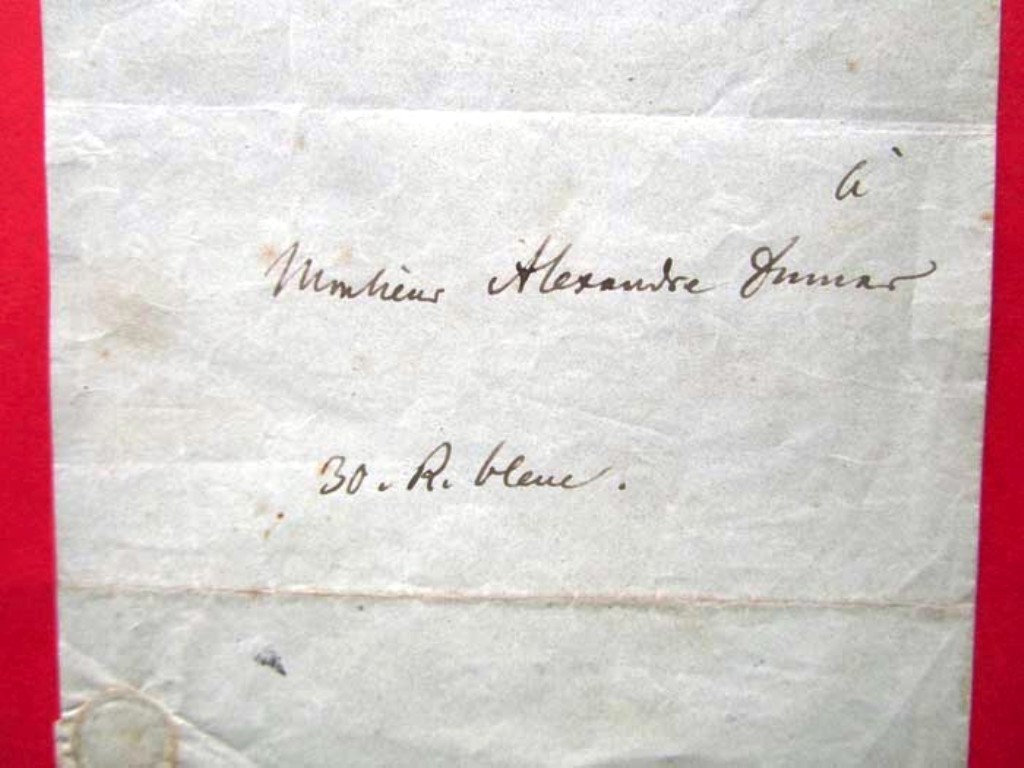 à
Monsieur Alexandre Dumas
30. R. bleue.